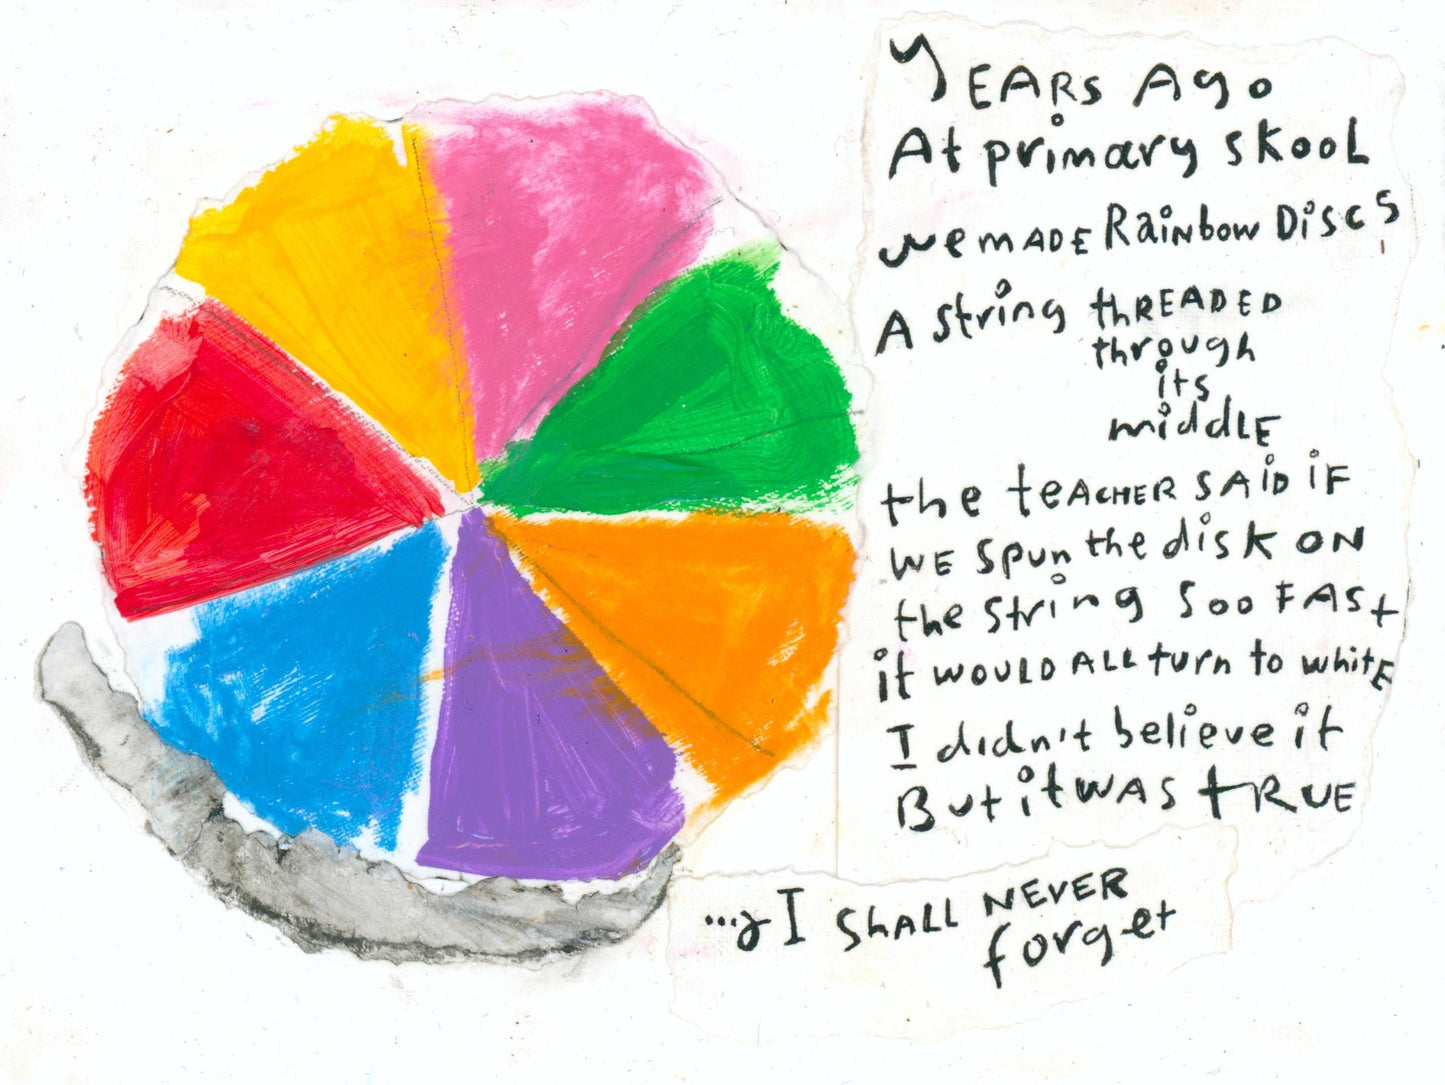 YEARS AGO
At primary skool
we MADE Rainbow Discs
A string thREADED
through
its
middLE
the teACHER SAiD iF
WE spun the disk ON
the string soo FASt
it WOULD ALL turn to whitE
I didn't believe it
But it WAS tRUE
...& I ShALL NEVER
forget